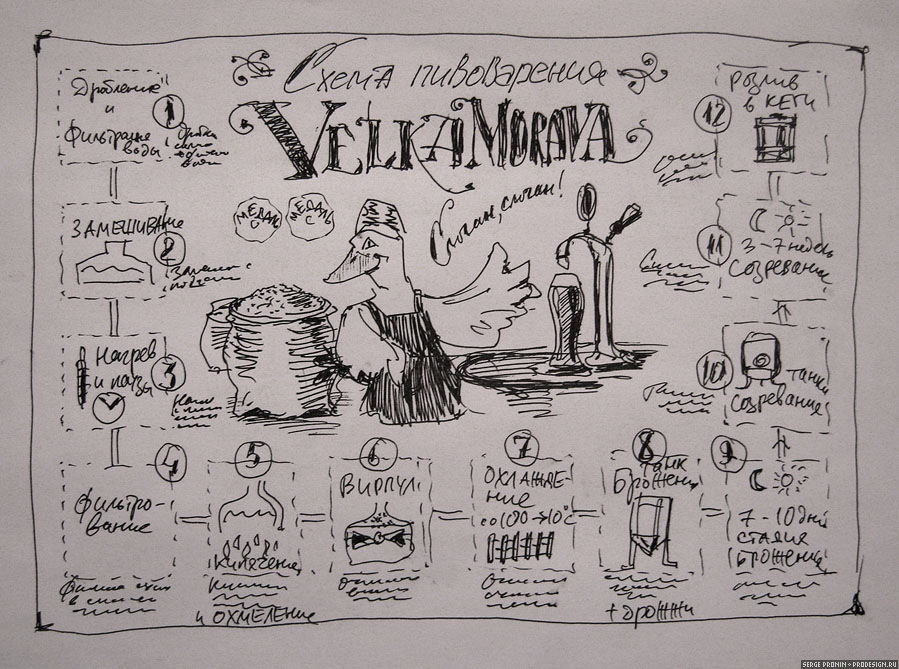 Схема пивоварения
VELKA MORAVA
МЕДАЛЬ
МЕДАЛЬ
Слоган, слоган!
1
Дробление
и
Фильтрация
воды
2
ЗАМЕШИВАНИЕ
3
Нагрев
и паузы
4
Фильтро-
вание
5
Кипячение
и ОХМЕЛЕНИЕ
6
ВИРПУЛ
7
ОХЛАЖДЕ-
НИЕ
со 100 → 10°C
8
Танк
Брожения
+ дрожжи
9
7-10 дней
СТАДИЯ
БРОЖЕНИЯ
10
танки
созревания
11
3-7 недель
Созревания
12
РОЗЛИВ
в КЕГИ
SERGE PRONIN • PRODESIGN.RU